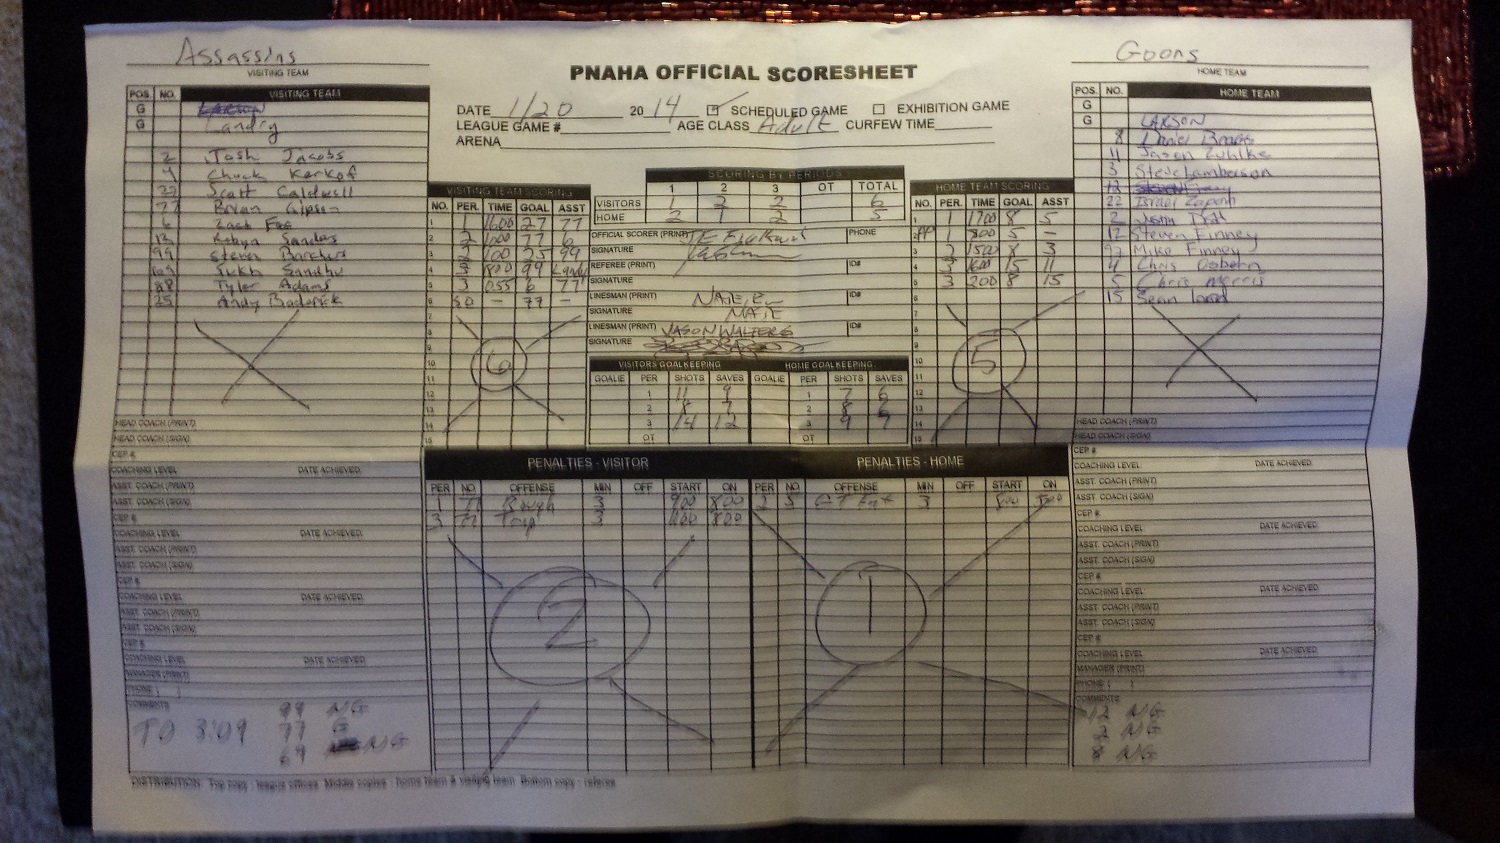 Assassins
VISITING TEAM
Goons
HOME TEAM
PNAHA OFFICIAL SCORESHEET
DATE 1/20 20 14 SCHEDULED GAME EXHIBITION GAME
LEAGUE GAME # AGE CLASS Adult CURFEW TIME
ARENA
POS. NO. VISITING TEAM
G
G Landry
2 Josh Jacobs
Chuck Kerkof
Scott Caldwell
77 Bryan Gipson
6 Zack
Sandas
99 Steven
Sukh Sandhu
88 Tyler Adams
25 Andy Baderick
HEAD COACH (PRINT)
HEAD COACH (SIGN)
CEP #
COACHING LEVEL DATE ACHIEVED
ASST. COACH (PRINT)
ASST. COACH (SIGN)
CEP #
COACHING LEVEL DATE ACHIEVED
ASST. COACH (PRINT)
ASST. COACH (SIGN)
CEP #
COACHING LEVEL DATE ACHIEVED
ASST. COACH (PRINT)
ASST. COACH (SIGN)
CEP #
COACHING LEVEL DATE ACHIEVED
MANAGER (PRINT)
PHONE ( )
COMMENTS
TO 3:09
99 NG
77 G
69 NG
VISITING TEAM SCORING
NO. PER. TIME GOAL ASST
1 1 1600 27 77
2 2 1000 77 6
3 2 100 25 99
4 3 800 99 Landy
5 3 055 6 77
6 SO - 77 -
7
8
9
10
11
12
13
14
15
6
SCORING BY PERIODS
1 2 3 OT TOTAL
VISITORS 1 2 2 6
HOME 2 1 2 5
OFFICIAL SCORER (PRINT) PHONE
SIGNATURE
REFEREE (PRINT) ID#
SIGNATURE
LINESMAN (PRINT) ID#
SIGNATURE NATE
LINESMAN (PRINT) JASON WALTERS ID#
SIGNATURE
VISITORS GOALKEEPING HOME GOALKEEPING
GOALIE PER SHOTS SAVES GOALIE PER SHOTS SAVES
1 11 9 1 7 6
2 8 7 2 8 6
3 14 12 3 9 7
OT OT
HOME TEAM SCORING
NO. PER. TIME GOAL ASST
1 1 1700 8 5
PP 1 800 5 -
3 2 1500 8 3
4 3 1600 15 11
5 3 200 8 15
6
7
8
9
10
11
12
13
14
15
5
POS. NO. HOME TEAM
G
G LARSON
8 Daniel Brooks
11 Jason Zuhlke
3 Steve Lamberson
22 Israel
2
12 Steven Finney
97 Mike Finney
4 Chris Osborn
5 Chris Morris
15 Sean
HEAD COACH (PRINT)
HEAD COACH (SIGN)
CEP #
COACHING LEVEL DATE ACHIEVED
ASST. COACH (PRINT)
ASST. COACH (SIGN)
CEP #
COACHING LEVEL DATE ACHIEVED
ASST. COACH (PRINT)
ASST. COACH (SIGN)
CEP #
COACHING LEVEL DATE ACHIEVED
ASST. COACH (PRINT)
ASST. COACH (SIGN)
CEP #
COACHING LEVEL DATE ACHIEVED
MANAGER (PRINT)
PHONE ( )
COMMENTS
12 NG
2 NG
8 NG
PENALTIES - VISITOR PENALTIES - HOME
PER NO. OFFENSE MIN OFF START ON PER NO. OFFENSE MIN OFF START ON
77 Rough 3 900 800 2 5 3 800 500
3 77 Trip 3 1100 800
2
1
DISTRIBUTION Top copy : league offices Middle copies - home team & visiting team Bottom copy - referee